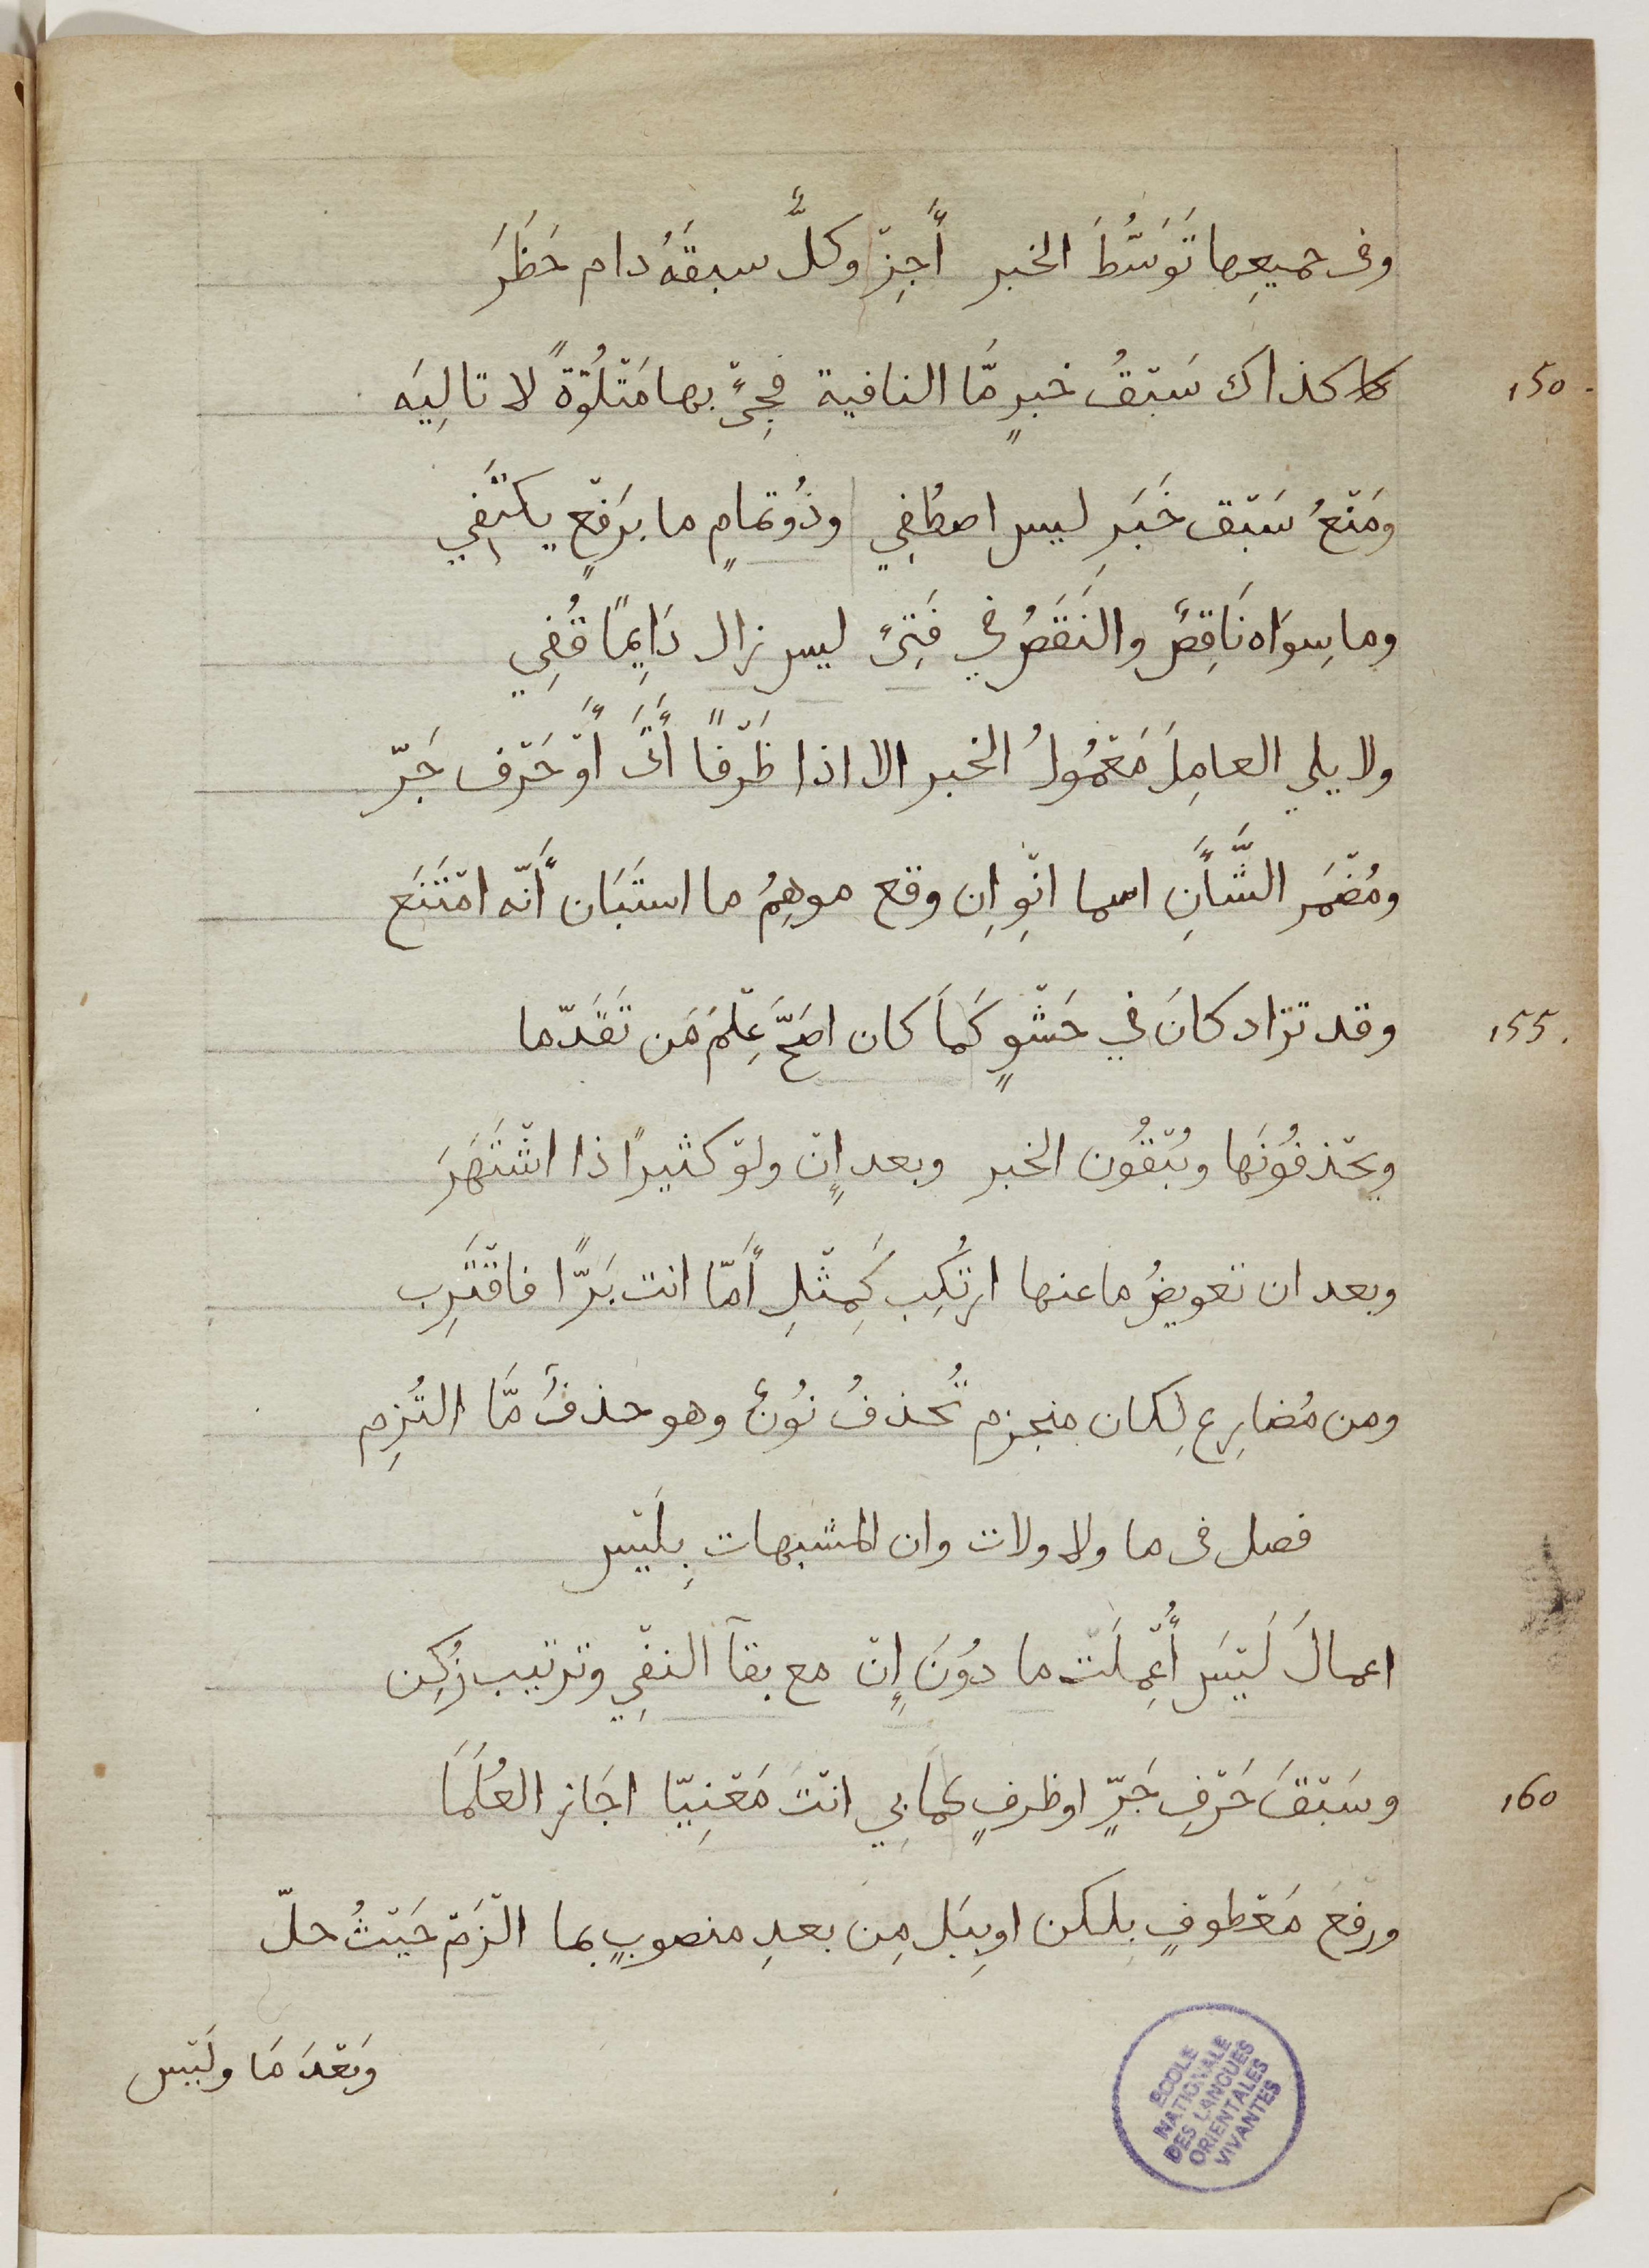 وفى جميعِها تَوَسُّطَ الخبر أَجِزْ وكلٌّ سبقَهُ دام حَظَرَ
150. كذاك سَبْقُ خبرٍ مَّا النافية فجِئْ بها مَتْلُوّةً لا تالِيَه
ومَنْعُ سَبْق خَبَرِ ليس اصطُفِي وذُو تمامٍ ما بَرفْعٍ يكتَفِي
وما سِوَاه نَاقِصٌ والنَقَصُ في فَتِئَ ليس زال دَايِمًا قُفِي
ولا يلي العامِلَ مَعْمُولُ الخبر الا اذا ظَرْفًا أَتَى أَوْ حَرْف جَرّ
ومُضْمَر الشَّأَنِ اسما انْوِ اِن وقع موهِمُ ما استَبَان أَنّه امْتَنَع
155. وقد تزاد كانَ في حَشْوٍ كَمَا كان اصَحَّ عِلْمَ مَن تَقَدّما
ويحْذفُونَها ويُبْقُون الخبر وبعد إِنْ ولوْ كثيرًا ذا اشْتَهَرَ
وبعد ان تعويضُ ما عنها ارتُكِب كَمِثْلِ أَمّا انت بَرًّا فاقْتَرِب
ومن مُضارِع لِكان منجزم تُحذفُ نُونٌ وهو حذفٌ مَّا التُزِم
فصل فى ما ولا ولات وان المشبهات بِلَيْس
اعمالَ لَيْسَ أُعْمِلَتْ ما دُونَ إِنْ مع بقآ النفْيِ وترتيب زُكِن
160 وسَبْقَ حَرْفِ جَرٍّ او ظرفٍ كمَا بِي انْتَ مَعْنِيّا اجَاز العُلَمَا
ورفْعَ مَعْطوفٍ بِلكن او بِبَل مِن بعدِ منصوبٍ بما الْزَمْ حَيْثُ حلّ
وَبَعْدَ مَا ولَيْس
ECOLE
NATIONALE
DES LANGUES
ORIENTALES
VIVANTES